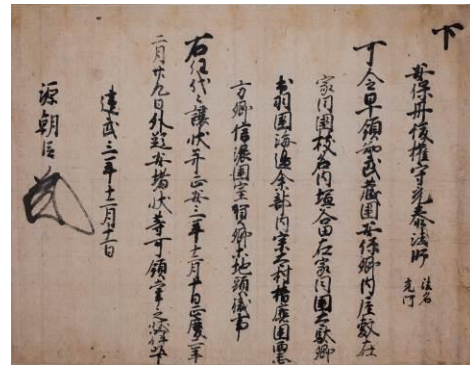 下
安保丹後権守光泰法師 法名光阿
可令早領知武蔵国安保郷内屋敷在
家同国枝名内塩谷田在家同国太駄郷
出羽国海辺余部内宗太村播磨国西
方郷信濃国室賀郷地頭職事
右任代々譲状并正安三年十二月十日正慶二年
二月廿九日外題安堵状等可領掌之状如件
建武三年十二月十一日
源朝臣